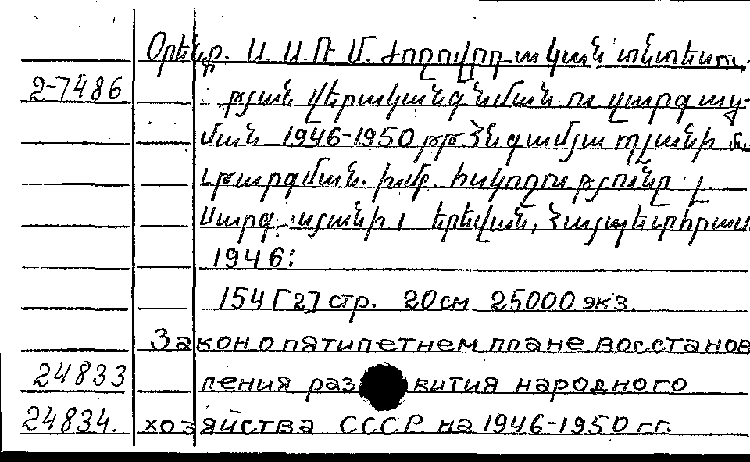 Օրենք. Ս Ս Ռ Մ. ժողովրդական տնտեսու
2-7486 թյան վերականգնման ու զարգաց-
ման 1946-1950 թթ. հնգամյա պլանի մ
Թարգման. խմբ. խսկողությունը
Սարգսյանի։ Երեվան, Հայպետհրատ
1946:
154 [2] стр. 20 см 25000 экз
Закон о пятилетнем плане восстанов
24833 ления раз вития народного
24834. хозяйства СССР на 1946-1950 гг.